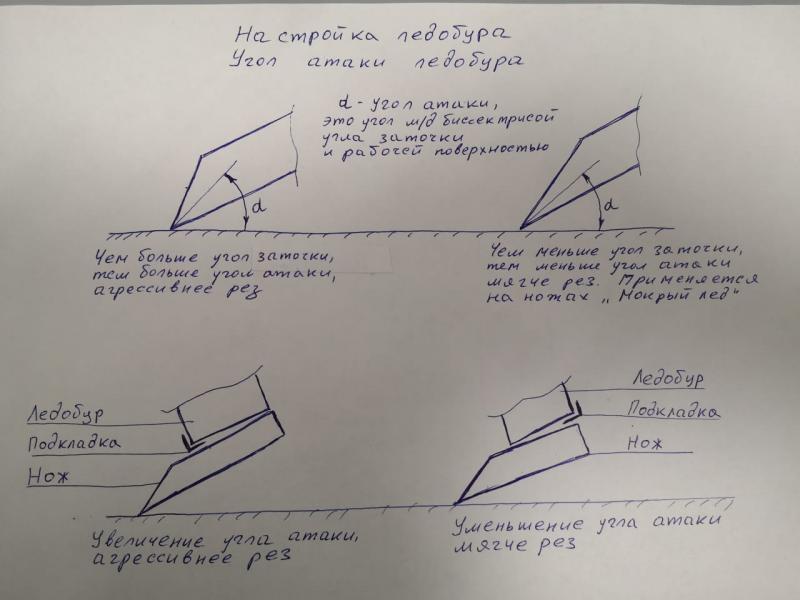 Настройка ледобура
Угол атаки ледобура
α - угол атаки,
это угол м/д биссектрисой
угла заточки
и рабочей поверхностью
α
α
Чем больше угол заточки,
тем больше угол атаки,
агрессивнее рез
Чем меньше угол заточки,
тем меньше угол атаки
мягче рез. Применяется
на ножах „Мокрый лед"
Ледобур
Подкладка
Нож
Ледобур
Подкладка
Нож
Увеличение угла атаки,
агрессивнее рез
Уменьшение угла атаки
мягче рез